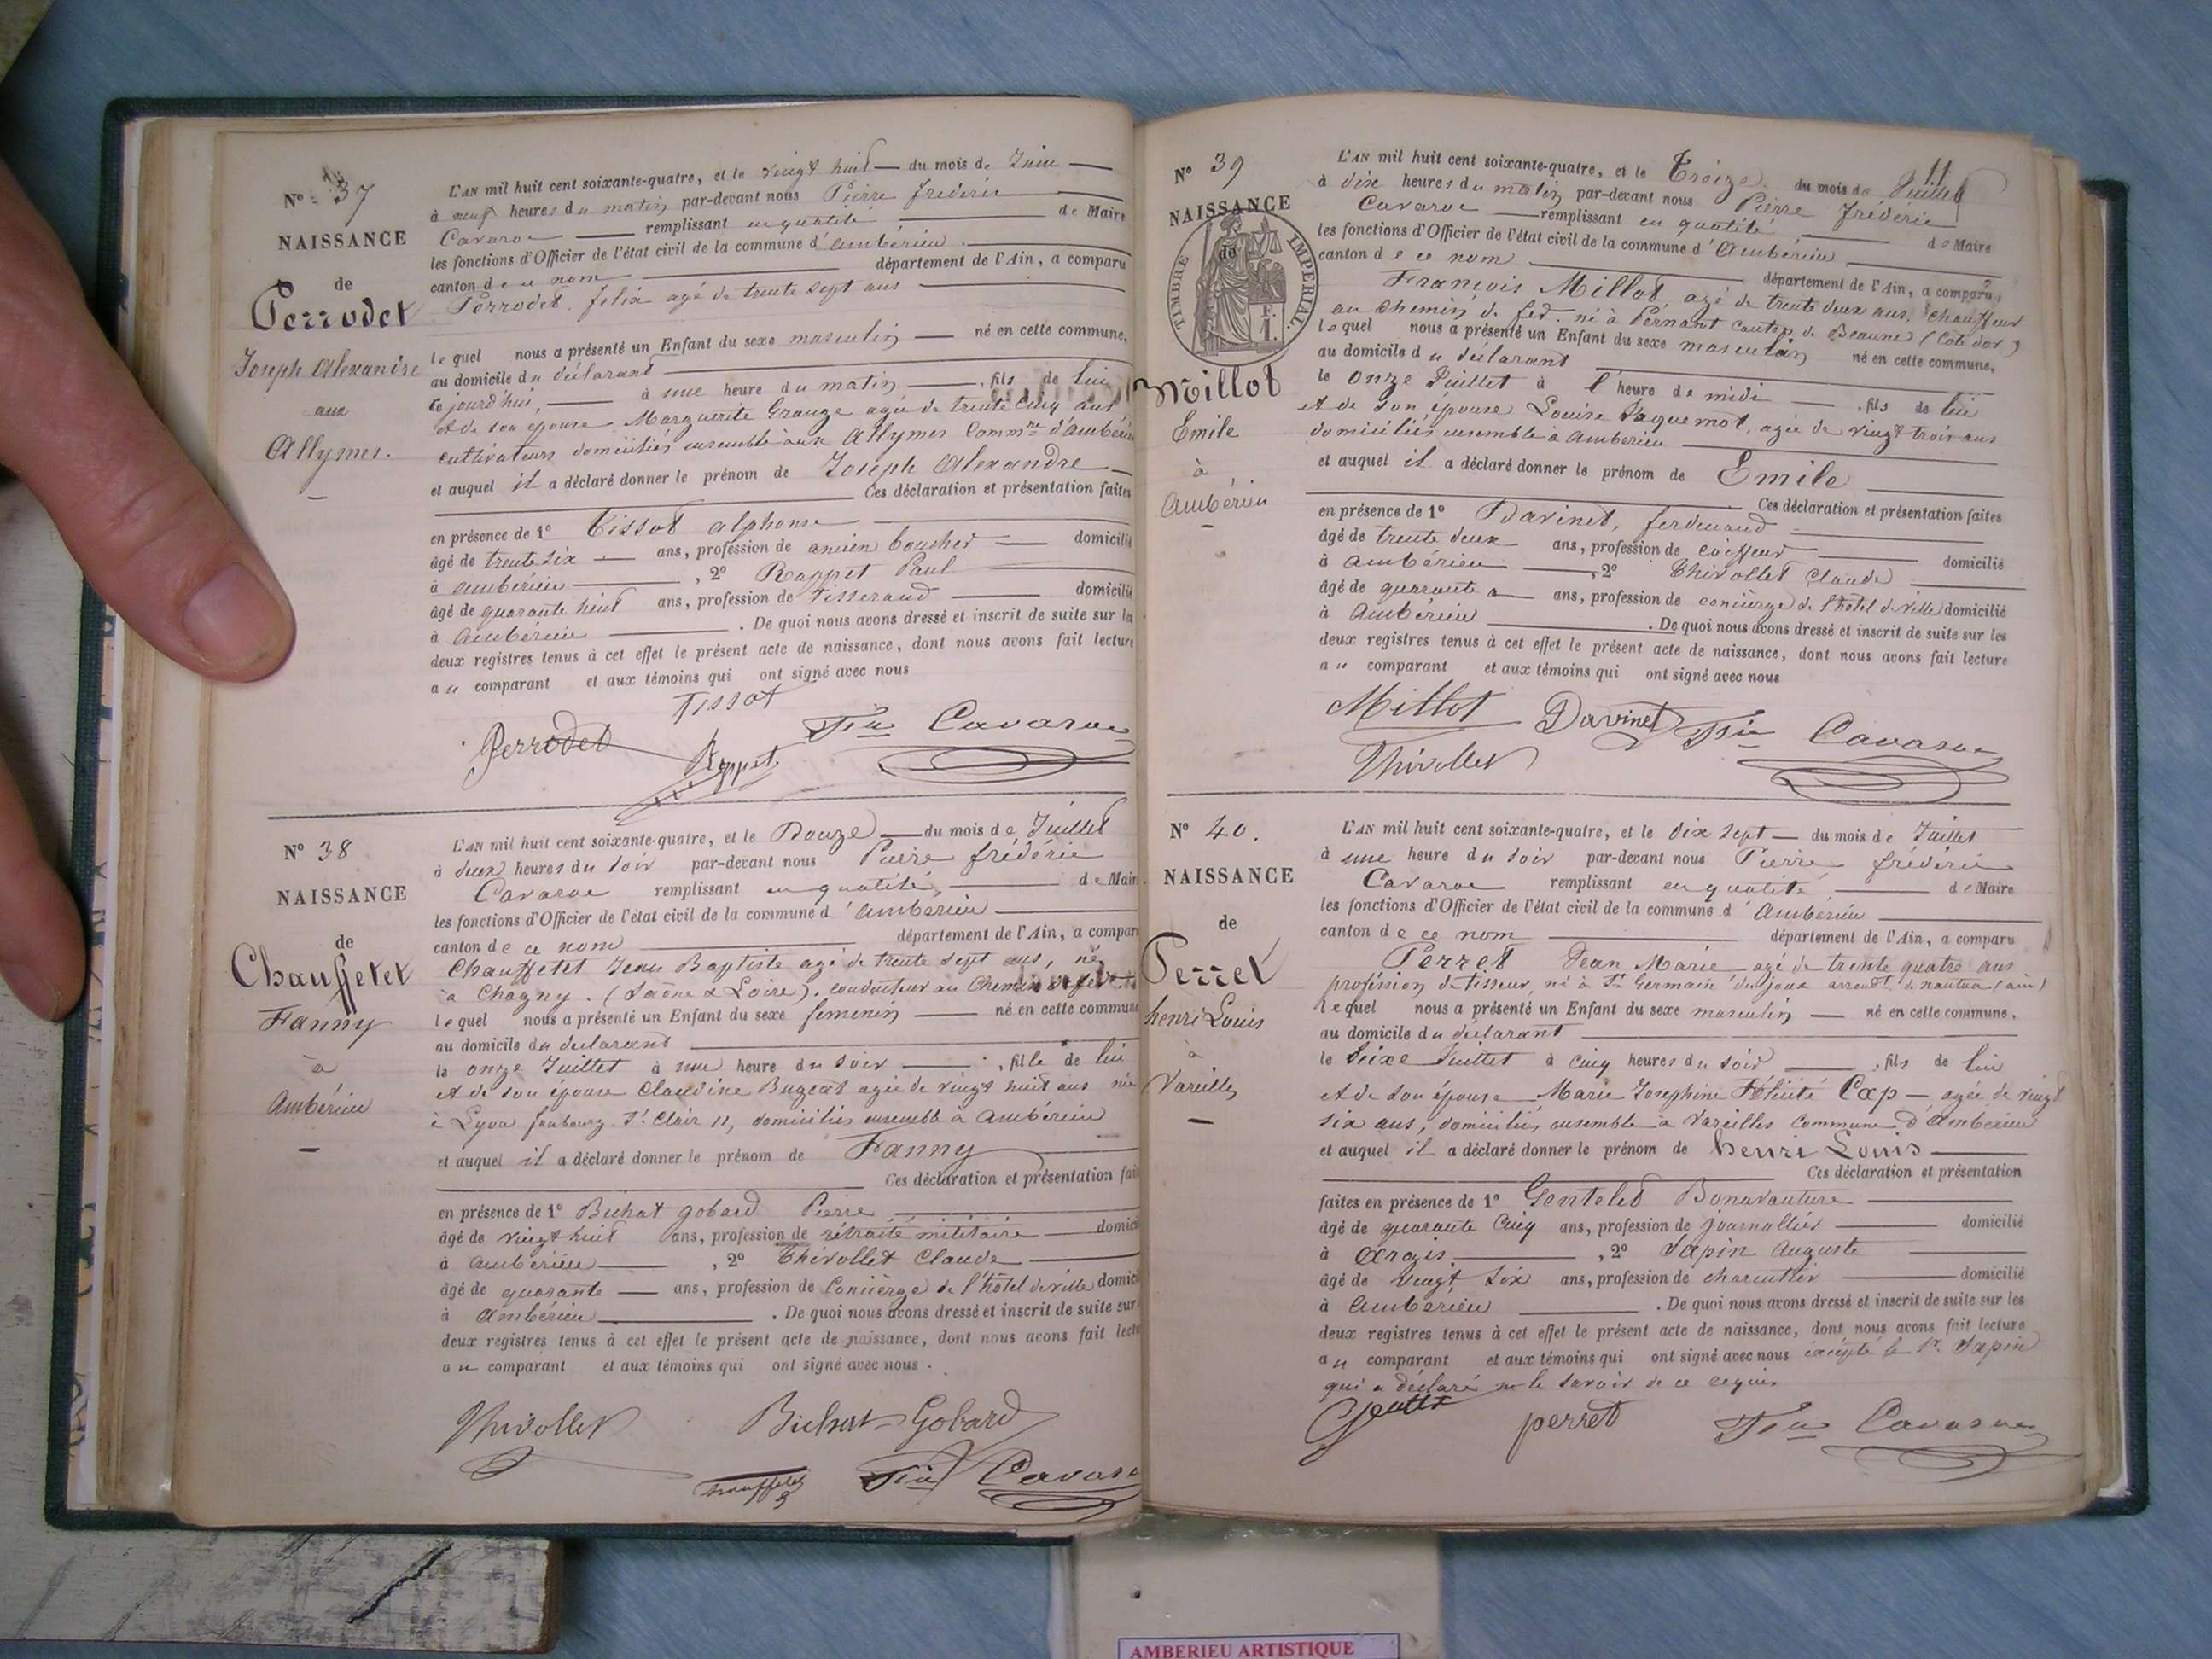 N° 37
NAISSANCE
de
Perrodet
Joseph Alexandre
aux
Allymes.
L'AN mil huit cent soixante-quatre, et le vingt huit du mois de Juin
à neuf heures du matin par-devant nous Pierre frédéric
Cavaroc remplissant en qualité de Maire
les fonctions d'Officier de l'état civil de la commune d'ambérieu.
canton de ce nom département de l'Ain, a comparu
Perrodet. felix agé de trente sept ans
lequel nous a présenté un Enfant du sexe masculin né en cette commune,
au domicile du déclarant
ce jourd'hui, à une heure du matin, fils de lui
et de son épouse Marguerite Grange agée de trente cinq ans
cultivateurs domiciliés ensemble aux Allymes Comm.ne d'ambérieu
et auquel il a déclaré donner le prénom de Joseph Alexandre
Ces déclaration et présentation faites
en présence de 1° Tissot alphonse
âgé de trente six ans, profession de ancien boucher domicilié
à ambérieu, 2° Rappet Paul
âgé de quarante huit ans, profession de tisserand domicilié
à Ambérieu. De quoi nous avons dressé et inscrit de suite sur les
deux registres tenus à cet effet le présent acte de naissance, dont nous avons fait lecture
au comparant et aux témoins qui ont signé avec nous
Tissot
Perrodet Rappet Fic Cavaroc
N° 38
NAISSANCE
de
Chauffetet
Fanny
à
Ambérieu
L'AN mil huit cent soixante-quatre, et le Douze du mois de Juillet
à deux heures du soir par-devant nous Pierre frédéric
Cavaroc remplissant en qualité, de Maire
les fonctions d'Officier de l'état civil de la commune d'ambérieu
canton de ce nom département de l'Ain, a comparu
Chauffetet Jean Baptiste agé de trente sept ans, né
à Chagny. (Saône & Loire). conducteur au Chemin de fer
lequel nous a présenté un Enfant du sexe féminin né en cette commune
au domicile du déclarant
le onze Juillet à une heure du soir, fille de lui
et de son épouse Claudine Bugeat agée de vingt huit ans née
à Lyon faubourg St Clair 11, domiciliés ensemble à Ambérieu
et auquel il a déclaré donner le prénom de Fanny
Ces déclaration et présentation fai
en présence de 1° Bichat gobard Pierre
âgé de vingt huit ans, profession de rétraité militaire domici
à ambérieu, 2° Thivollet Claude
âgé de quarante ans, profession de Concièrge de l'hôtel de ville domici
à Ambérieu. De quoi nous avons dressé et inscrit de suite sur
deux registres tenus à cet effet le présent acte de naissance, dont nous avons fait lectu
au comparant et aux témoins qui ont signé avec nous.
Thivollet Bichat-Gobard
Chauffetet Fic Cavaroc
11
N° 39
NAISSANCE
de
TIMBRE IMPERIAL.
F.
1.
Millot
Emile
à
Ambérieu
L'AN mil huit cent soixante-quatre, et le Treize du mois de Juillet
à dix heures du matin par-devant nous Pierre frédéric
Cavaroc remplissant en qualité de Maire
les fonctions d'Officier de l'état civil de la commune d'Ambérieu
canton de ce nom département de l'Ain, a comparu,
François Millot, agé de trente deux ans, chauffeur
au Chemin de fer. né à Pernant Canton de Beaune (Cote d'or)
lequel nous a présenté un Enfant du sexe masculin né en cette commune,
au domicile du déclarant
le onze Juillet à l'heure de midi, fils de lui
et de son épouse Louise Jaquemot, agée de vingt trois ans
domiciliés ensemble à Ambérieu
et auquel il a déclaré donner le prénom de Emile
Ces déclaration et présentation faites
en présence de 1° Davinet, ferdinand
âgé de trente deux ans, profession de coiffeur domicilié
à Ambérieu, 2° Thivollet Claude
âgé de quarante ans, profession de concièrge de l'hôtel de ville domicilié
à Ambérieu. De quoi nous avons dressé et inscrit de suite sur les
deux registres tenus à cet effet le présent acte de naissance, dont nous avons fait lecture
au comparant et aux témoins qui ont signé avec nous
Millot Davinet Fic Cavaroc
Thivollet
N° 40.
NAISSANCE
de
Perret
henri Louis
à
Vareilles
L'AN mil huit cent soixante-quatre, et le dix sept du mois de Juillet
à une heure du soir par-devant nous Pierre fréderic
Cavaroc remplissant en qualité de Maire
les fonctions d'Officier de l'état civil de la commune d'Ambérieu
canton de ce nom département de l'Ain, a comparu
Perret Jean Marie agé de trente quatre ans
profession de tisseur, né à St Germain de joux arrondt de nantua (ain)
lequel nous a présenté un Enfant du sexe masculin né en cette commune,
au domicile du déclarant
le Seize Juillet à cinq heures du soir, fils de lui
et de son épouse Marie Josephine Félicité Cap agée de vingt
six ans, domiciliés ensemble à Vareilles Commune d'Ambérieu
et auquel il a déclaré donner le prénom de henri Louis
Ces déclaration et présentation
faites en présence de 1° Gentelet Bonavanture
âgé de quarante cinq ans, profession de journallier domicilié
à Argis, 2° Sapin Auguste
âgé de vingt six ans, profession de charcutier domicilié
à Ambérieu. De quoi nous avons dressé et inscrit de suite sur les
deux registres tenus à cet effet le présent acte de naissance, dont nous avons fait lecture
au comparant et aux témoins qui ont signé avec nous excepté le Sr. Sapin
qui a déclaré ne le savoir de ce requis
perret Fic Cavaroc
AMBERIEU ARTISTIQUE